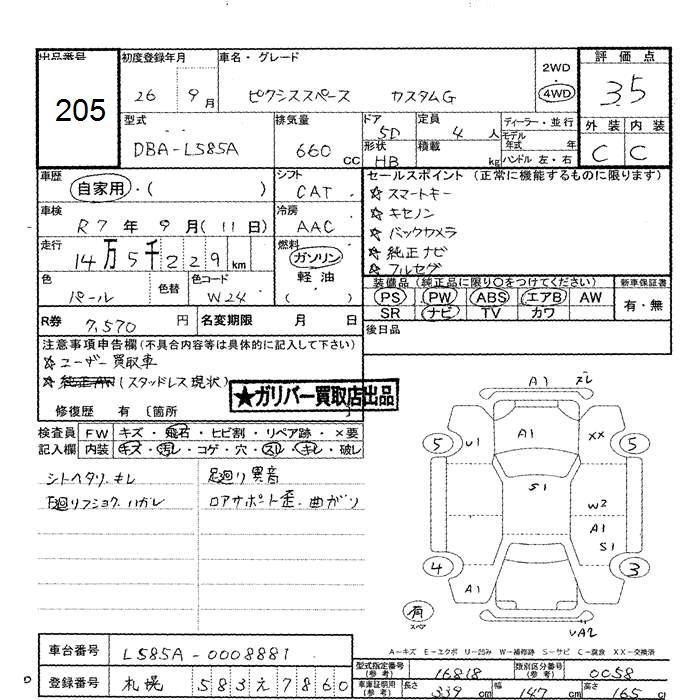 出品番号 初度登録年月 車名・グレード 2WD・4WD 評価点
205 26 9月 ピクシススペース カスタムG 3.5
型式 排気量 ドア 5D 定員 4人 ディーラー・並行 外装 内装
DBA-L585A 660cc 形状 HB 積載 kg モデル年式 年 C C
ハンドル 左・右
車歴 自家用・( ) シフト CAT セールスポイント (正常に機能するものに限ります)
☆スマートキー
車検 R7年9月(11日) 冷房 AAC ☆キセノン
☆バックカメラ
走行 14万5千229km 燃料 ガソリン 軽油 ☆純正ナビ
☆フルセグ
色 パール 色替 色コード W24 ( ) 装備品 (純正品に限り○をつけてください) 新車保証書
PS PW ABS エアB AW 有・無
SR ナビ TV カワ
R券 7,570円 名変期限 月 日 後日品
注意事項申告欄(不具合内容等は具体的に記入して下さい)
☆ユーザー買取車
☆純正AW(スタッドレス現状)
★ガリバー買取店出品
修復歴 有 〔箇所 〕
検査員 FW キズ・飛石・ヒビ割・リペア跡・×要
記入欄 内装 キズ・汚レ・コゲ・穴・スレ・キレ・破レ
シートヘタリ.キレ 足廻り異音
ロアサポート歪.曲がり
A1
5 U1 A1 XX 5
S1
W2
A1
S1
4 A1 3
有 スペア
UA2
A-キズ E-エクボ U-凹み W-補修跡 S-サビ C-腐食 XX-交換済
車台番号 L585A-0008881
型式指定番号(参考) 16818 類別区分番号(参考) 0058
登録番号 札幌 583え7860
車庫証明用(参考) 長さ 339cm 幅 147cm 高さ 165cm